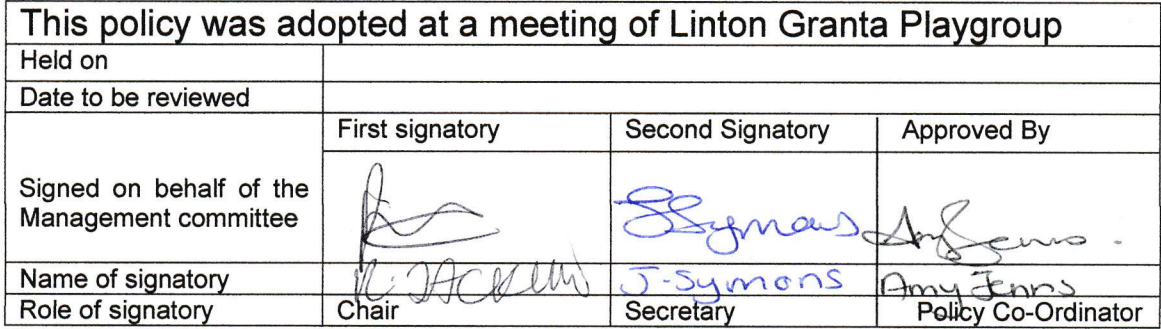 This policy was adopted at a meeting of Linton Granta Playgroup
Held on
Date to be reviewed
First signatory Second Signatory Approved By
Signed on behalf of the
Management committee
JSymons
Name of signatory J-Symons Amy Jenns
Role of signatory Chair Secretary Policy Co-Ordinator